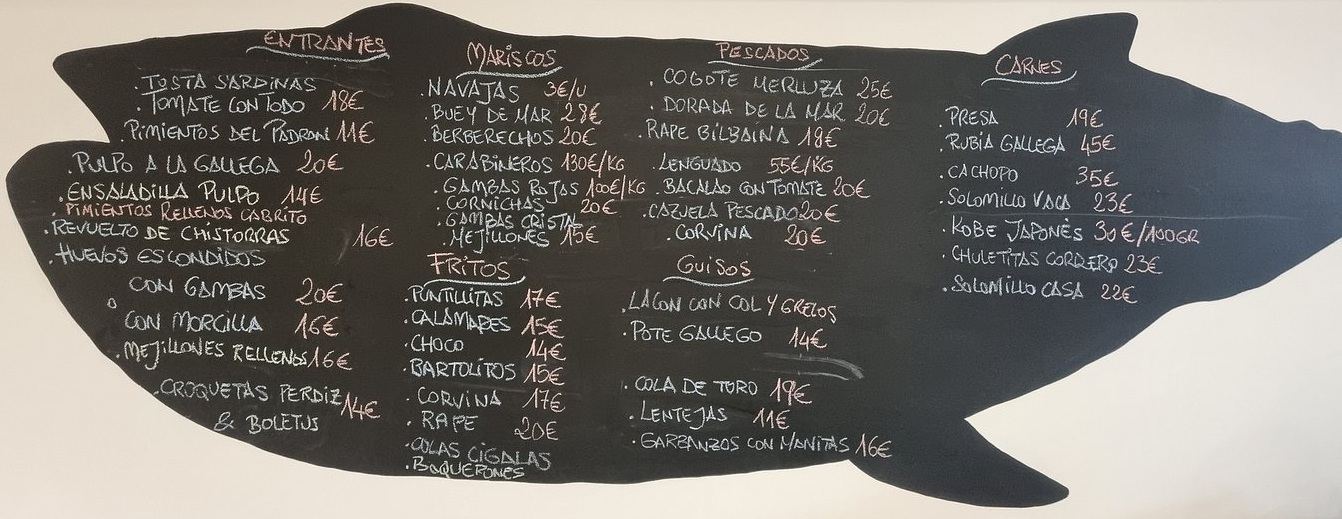 ENTRANTES
. TOSTA SARDINAS
. TOMATE CON TODO 18€
. PIMIENTOS DEL PADRON 11€
. PULPO A LA GALLEGA 20€
. ENSALADILLA PULPO 14€
. PIMIENTOS RELLENOS CABRITO
. REVUELTO DE CHISTORRAS 16€
. HUEVOS ESCONDIDOS
CON GAMBAS 20€
o
CON MORCILLA 16€
. MEJILLONES RELLENOS 16€
. CROQUETAS PERDIZ 14€
& BOLETUS
MARISCOS
. NAVAJAS 3€/U
. BUEY DE MAR 28€
. BERBERECHOS 20€
. CARABINEROS 130€/KG
. GAMBAS ROJAS 100€/KG
. CORNICHAS 20€
. GAMBAS CRISTAL
. MEJILLONES 15€
FRITOS
. PUNTILLITAS 17€
. CALAMARES 15€
. CHOCO 14€
. BARTOLITOS 15€
. CORVINA 17€
. RAPE 20€
. COLAS CIGALAS
. BOQUERONES
PESCADOS
. COGOTE MERLUZA 25€
. DORADA DE LA MAR 20€
. RAPE BILBAINA 18€
. LENGUADO 55€/KG
. BACALAO CON TOMATE 20€
. CAZUELA PESCADO 20€
. CORVINA 20€
GUISOS
. LACON CON COL Y GRELOS
. POTE GALLEGO 14€
. COLA DE TORO 19€
. LENTEJAS 11€
. GARBANZOS CON MANITAS 16€
CARNES
. PRESA 19€
. RUBIA GALLEGA 45€
. CACHOPO 35€
. SOLOMILLO VACA 23€
. KOBE JAPONÈS 30€/100GR
. CHULETITAS CORDERO 23€
. SOLOMILLO CASA 22€